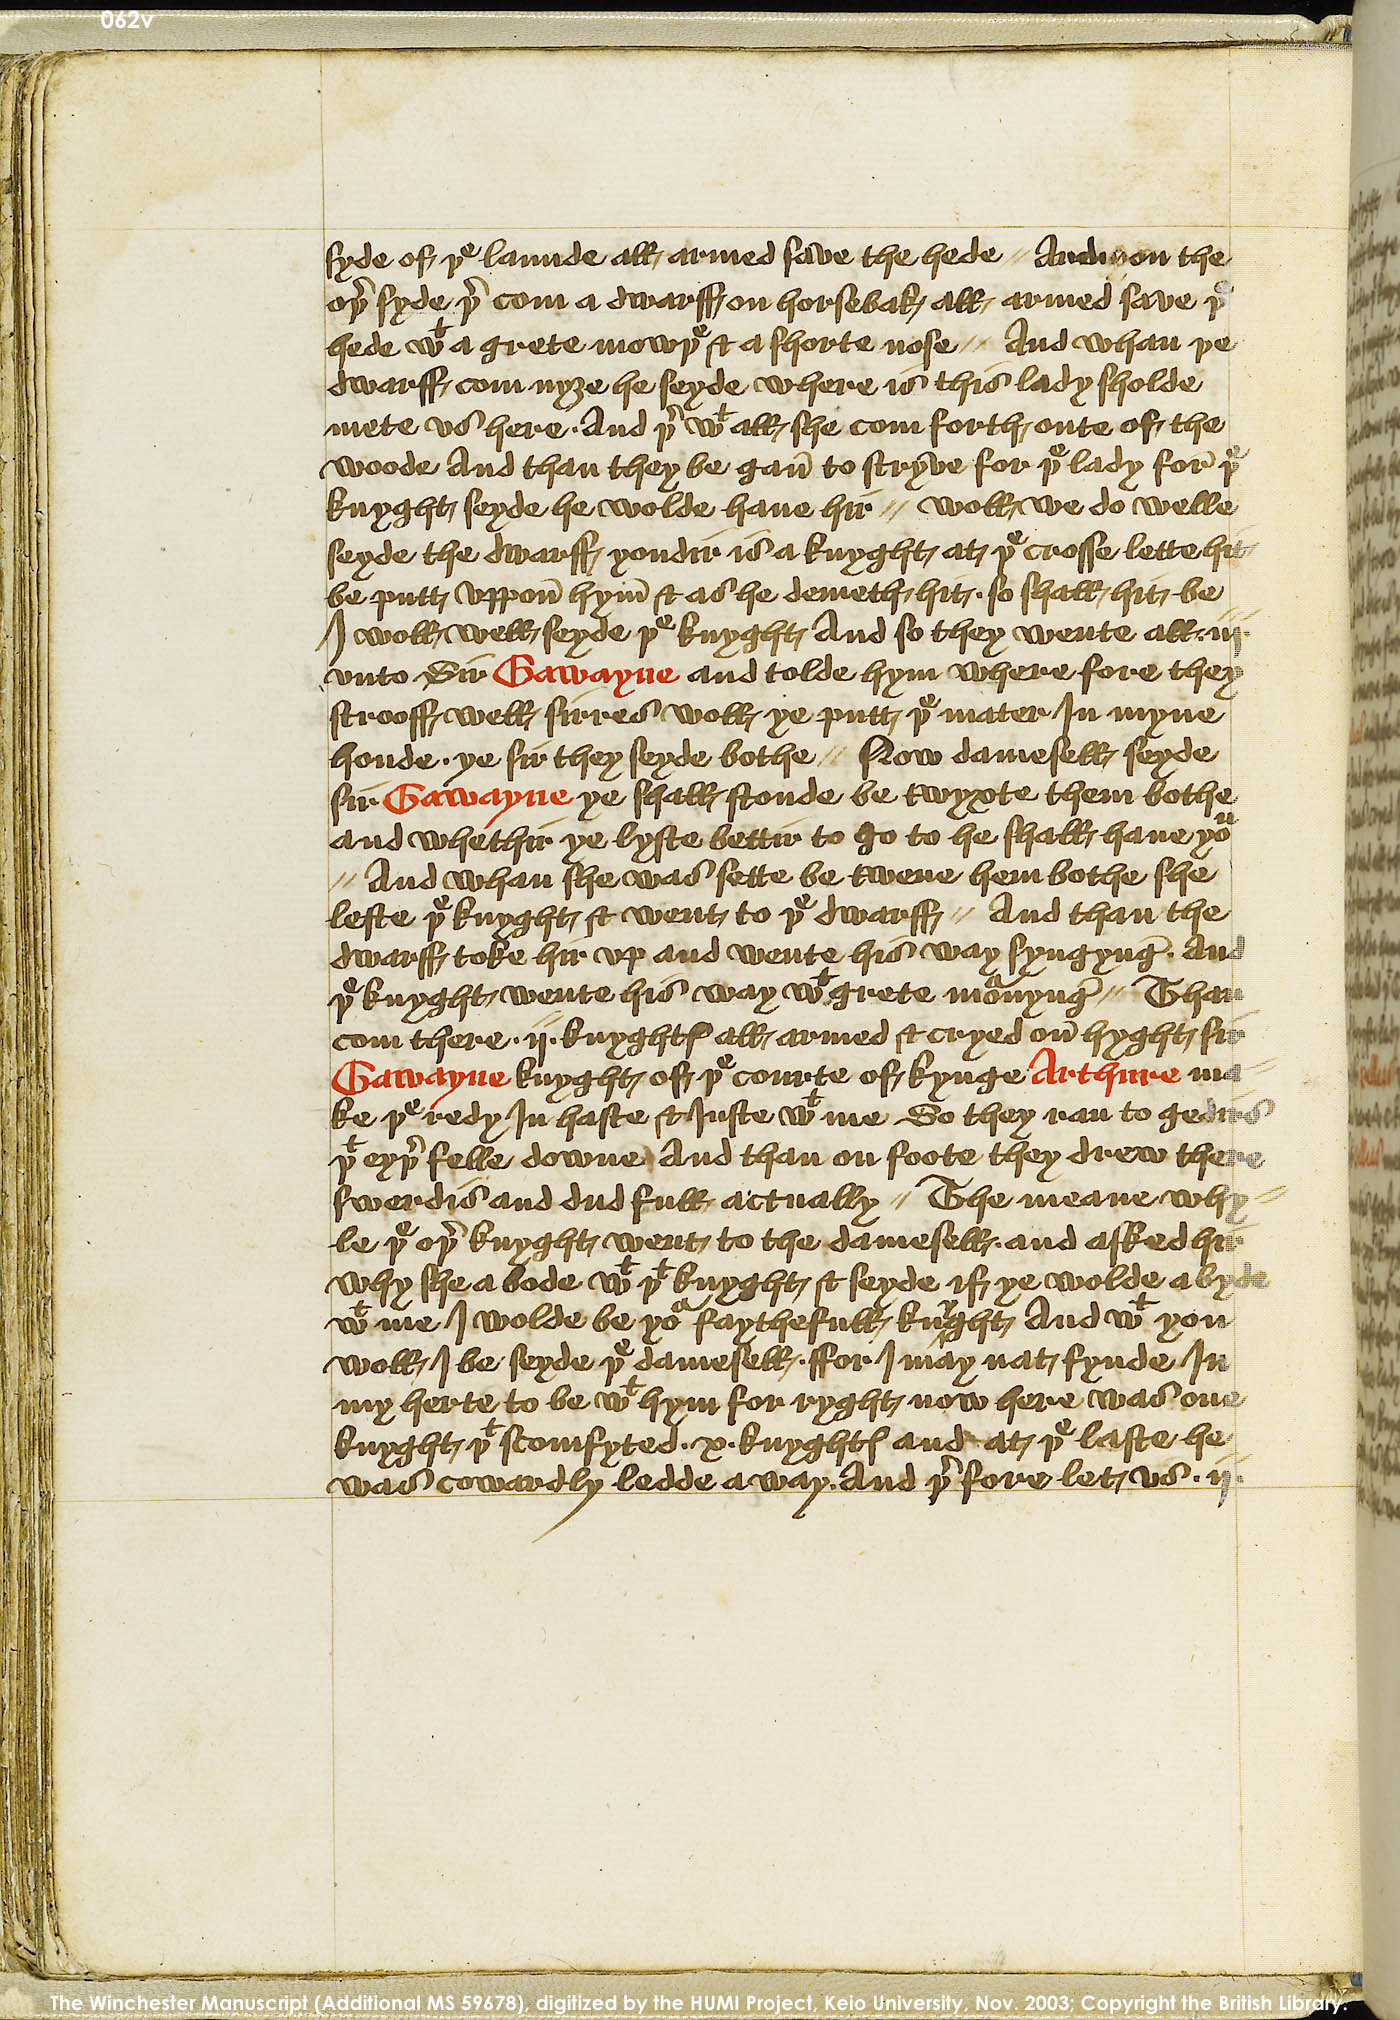 062v
syde of þe launde all armed save the hede // And on the
oþir syde þer com a dwarff on horsebak all armed save þe
hede wt a grete mowþe & a shorte nose // And whan þe
dwarff com nyȝe he seyde where is this lady sholde
mete vs here. And þer wt all she com forth oute of the
woode And than they be gan to stryve for þe lady for þe
knyght seyde he wolde haue hir // woll we do welle
seyde the dwarff yondir is a knyght at þe crosse lette hit
be putt vppon hym & as he demeth hit. so shall hit be
I woll well seyde þe knyght And so they wente all .iij.
vnto Sir Gawayne and tolde hym where fore they
strooff well sirres woll ye putt þe mater In myne
honde. ye sir they seyde bothe // Now damesell seyde
sir Gawayne ye shall stonde be twyxte them bothe
and whethir ye lyste bettir to go to he shall haue you
// And whan she was sette be twene hem bothe she
lefte þe knyght & went to þe dwarff // And than the
dwarff toke hir vp and wente his way syngyng. And
þe knyght wente his way wt grete mournyng // Than
com there .ij. knyghtes all armed & cryed on hyght sir
Gawayne knyght of þe courte of kynge Arthure ma
ke þe redy In haste & Juste wt me So they ran to gedirs
þt eyþer felle downe And than on foote they drew there
swerdis and dud full actually // The meane why
le þe oþer knyght went to the damesell. and asked hir
why she a bode wt þt knyght & seyde if ye wolde a byde
wt me I wolde be your faythefull knyght And wt you
woll I be seyde þe damesell. ffor I may nat fynde In
my herte to be wt hym for ryght now here was one
knyght þt scomfyted .x. knyghtes and at þe laste he
was cowardly ledde a way. And þerfore let vs .ij.
The Winchester Manuscript (Additional MS 59678), digitized by the HUMI Project, Keio University, Nov. 2003; Copyright the British Library.